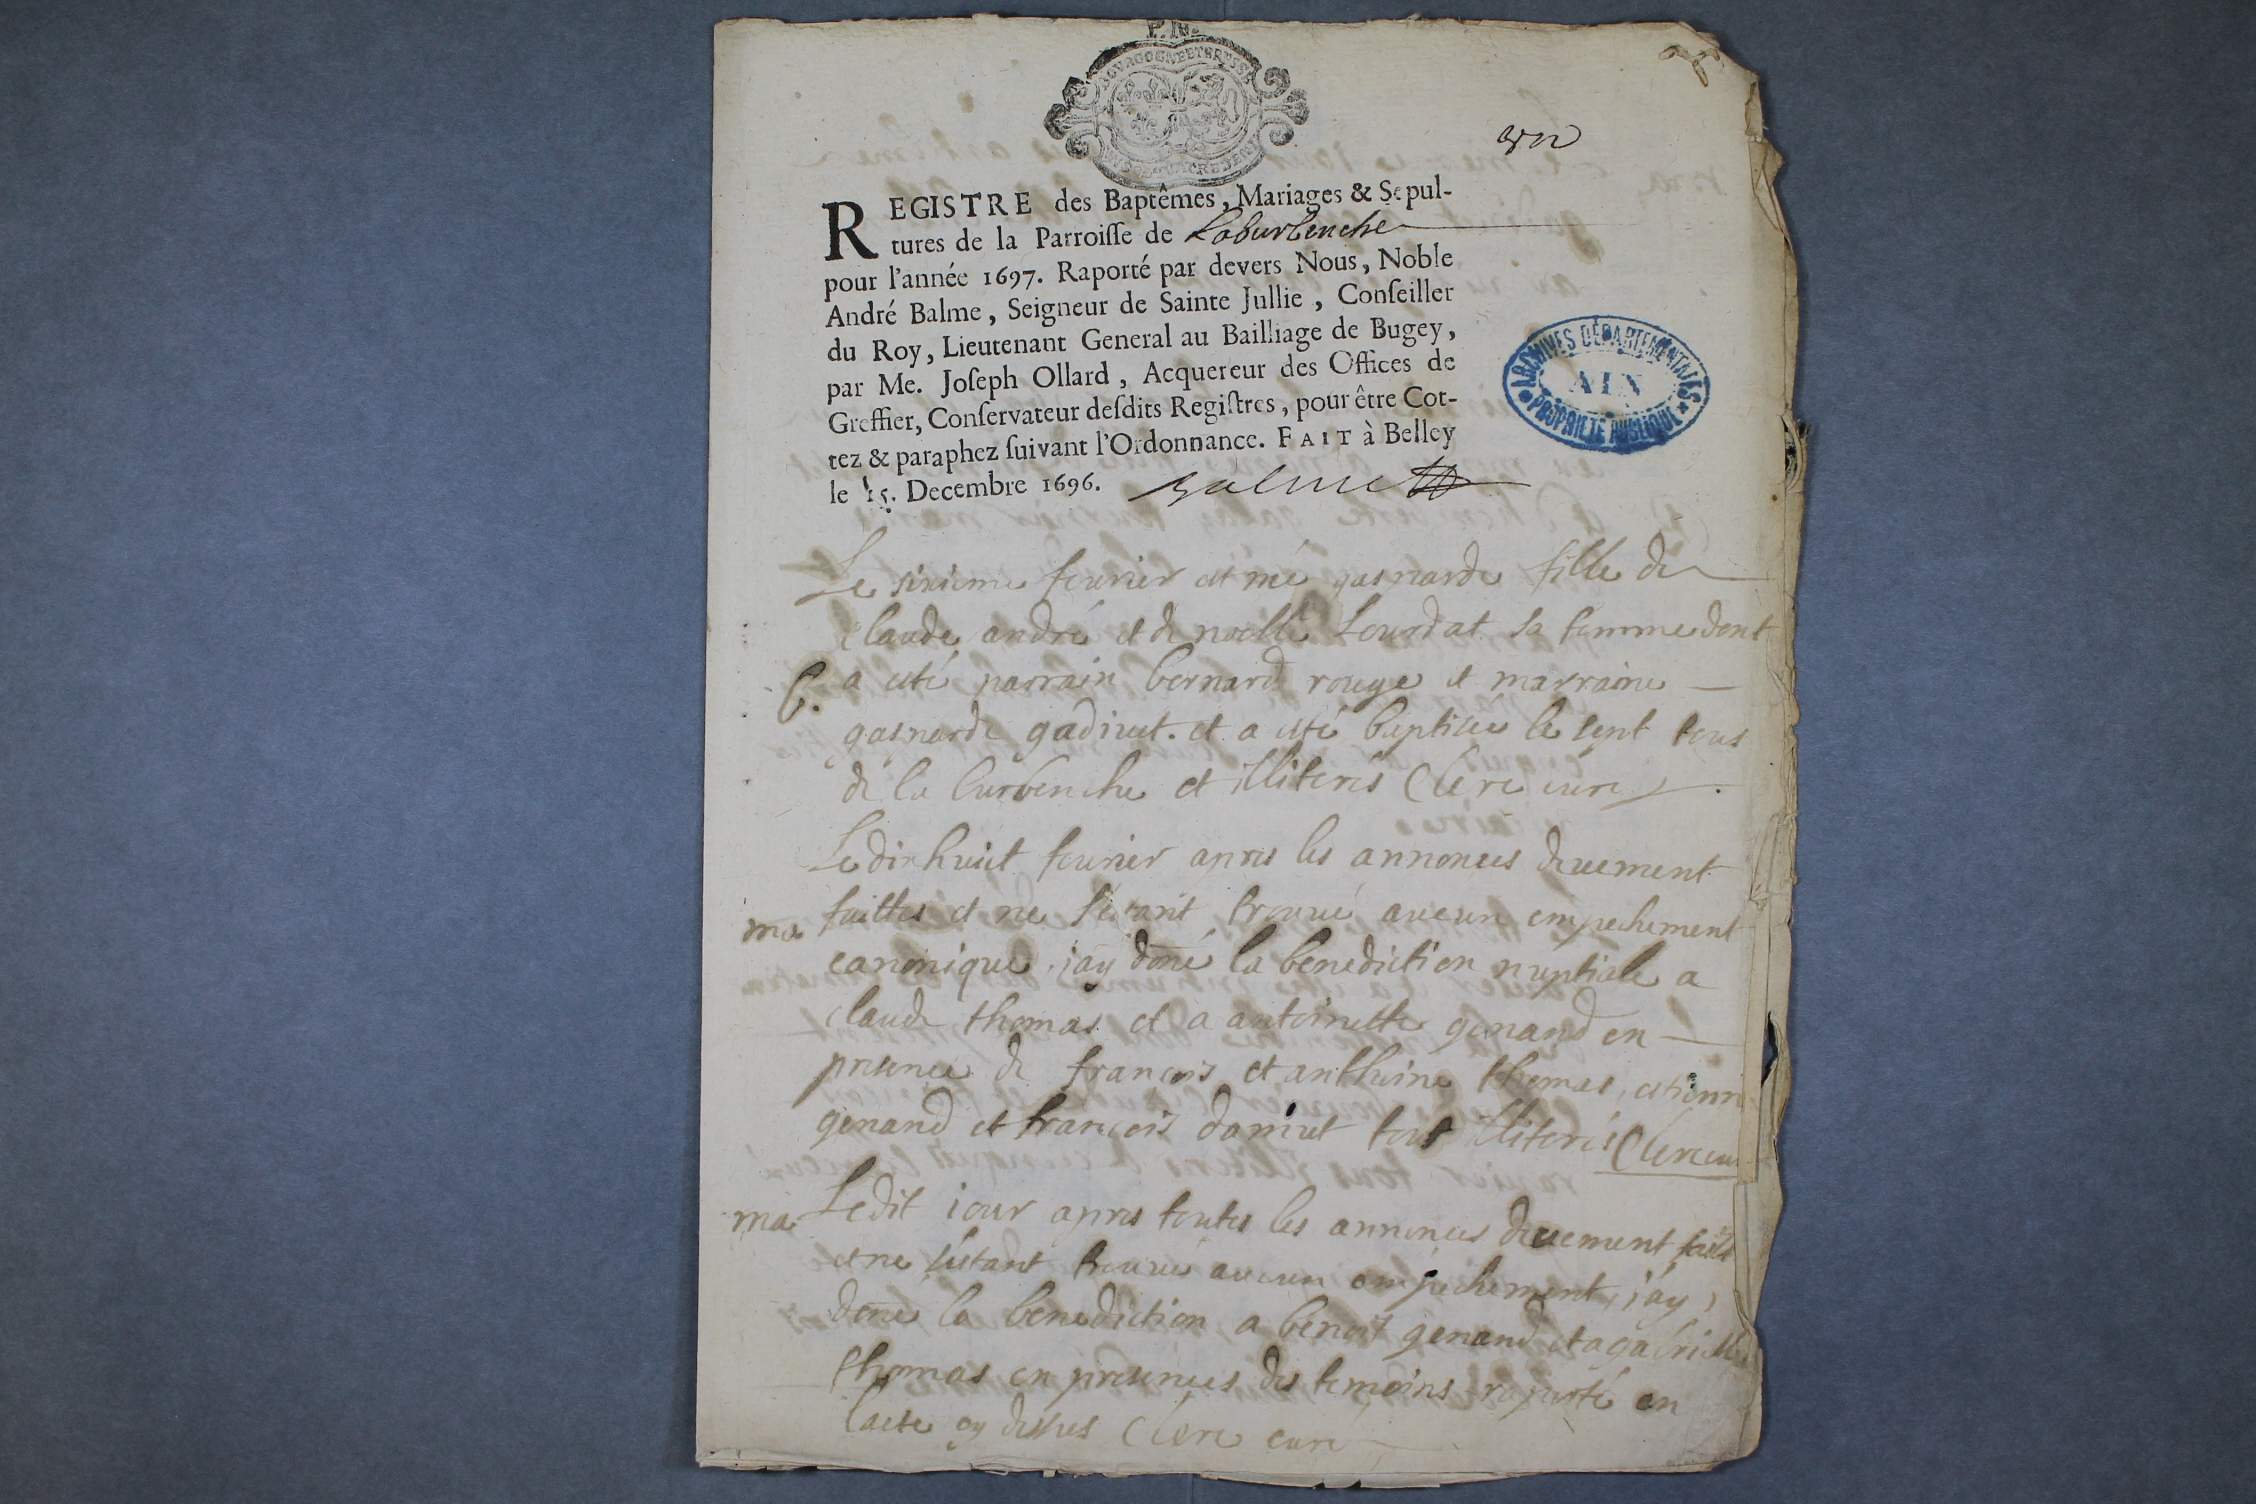 P. 16.
BOVRGOGNE ET BRESSE
un
REGISTRE des Baptêmes, Mariages & Sepul-
tures de la Parroisse de Laburbenche
pour l'année 1697. Raporté par devers Nous, Noble
André Balme, Seigneur de Sainte Jullie, Conseiller
du Roy, Lieutenant General au Bailliage de Bugey,
par Me. Joseph Ollard, Acquereur des Offices de
Greffier, Conservateur desdits Registres, pour être Cot-
tez & paraphez suivant l'Ordonnance. FAIT à Belley
le 15. Decembre 1696. Balme
ARCHIVES DÉPARTEMENTALES
AIN
PROPRIÉTÉ PUBLIQUE
Le sixieme feurier est née gasparde fille de
claude andré et de noelle Lourdat sa femme dont
b. a esté parrain bernard rouge et marraine
gasparde gadivet. et a esté baptisée le sept tous
de la burbenche et illiterés Clerc curé
Le dixhuict feurier apres les annonces deuement
ma faittes et ne s'étant trouué aucun empechement
canonique jay doné la benediction nuptiale a
claude thomas et a antoinette genand en
presence de francois et anthoine thomas, estienne
genand et francois damet tous illiterés Clerc cu
ma Ledit iour apres toutes les annonces deuement faites
et ne s'étant trouué aucun empechement, jay
doné la benediction a benoit genand et a gabrielle
thomas en presences des temoins raporté en
lacte cy dessus Clerc curé